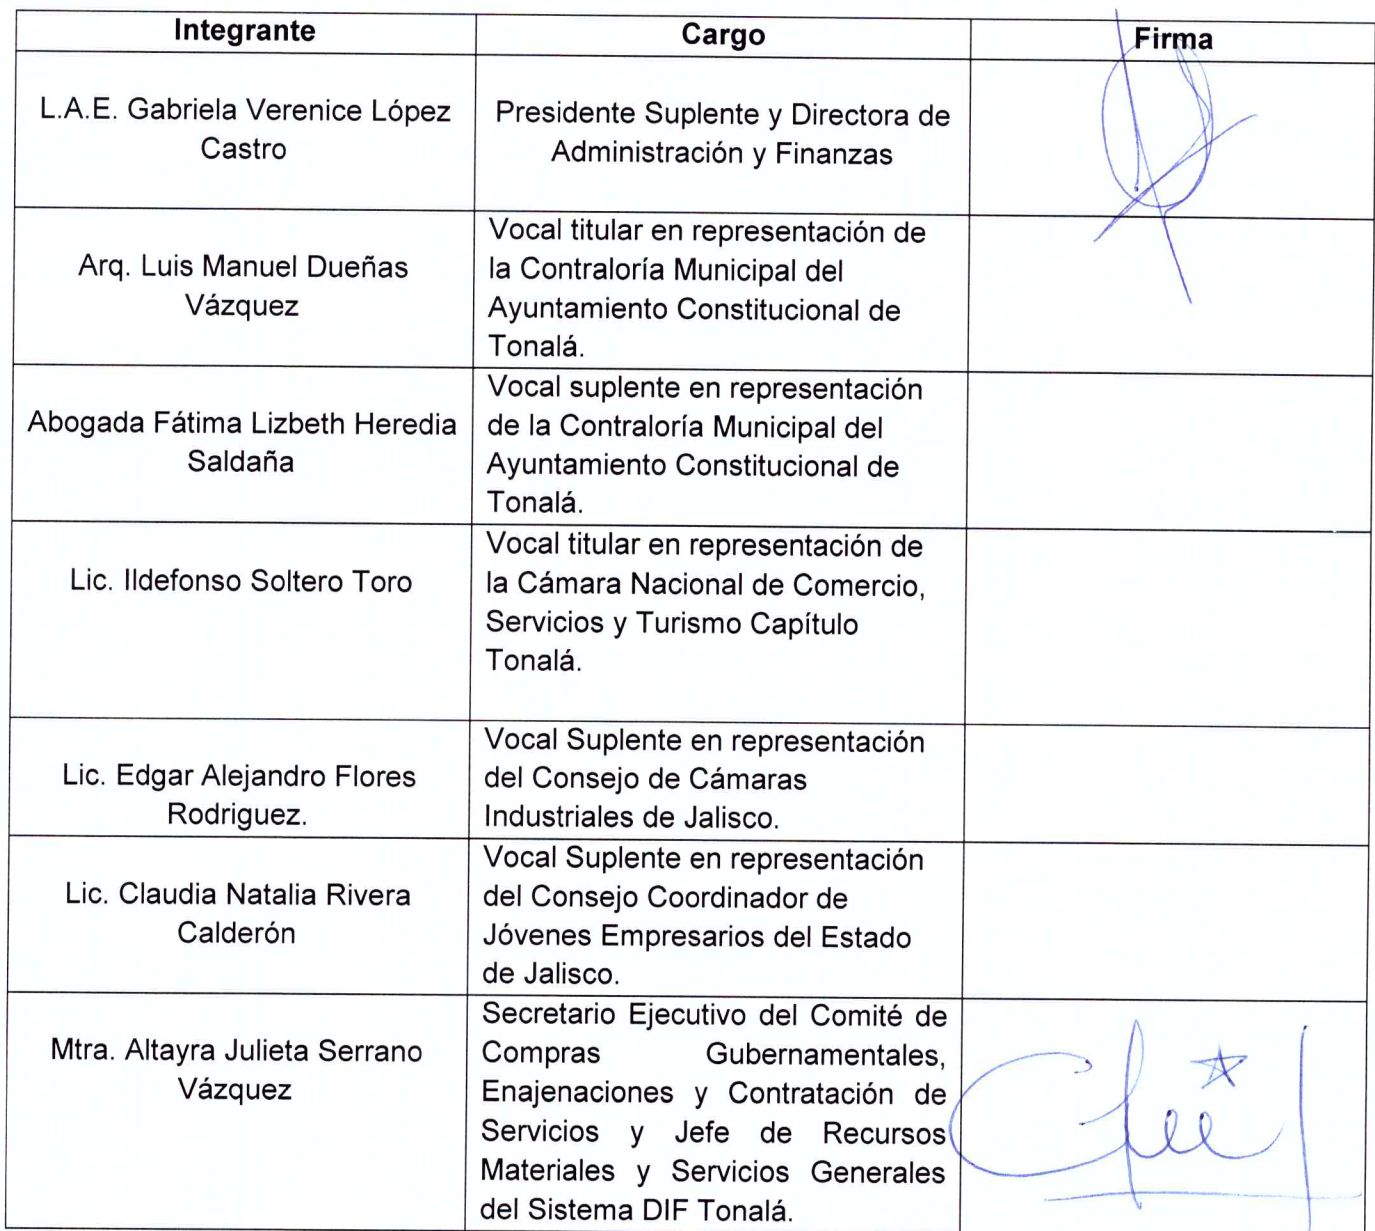 Integrante Cargo Firma
L.A.E. Gabriela Verenice López
Castro
Presidente Suplente y Directora de
Administración y Finanzas
Arq. Luis Manuel Dueñas
Vázquez
Vocal titular en representación de
la Contraloría Municipal del
Ayuntamiento Constitucional de
Tonalá.
Abogada Fátima Lizbeth Heredia
Saldaña
Vocal suplente en representación
de la Contraloría Municipal del
Ayuntamiento Constitucional de
Tonalá.
Lic. Ildefonso Soltero Toro
Vocal titular en representación de
la Cámara Nacional de Comercio,
Servicios y Turismo Capítulo
Tonalá.
Lic. Edgar Alejandro Flores
Rodriguez.
Vocal Suplente en representación
del Consejo de Cámaras
Industriales de Jalisco.
Lic. Claudia Natalia Rivera
Calderón
Vocal Suplente en representación
del Consejo Coordinador de
Jóvenes Empresarios del Estado
de Jalisco.
Mtra. Altayra Julieta Serrano
Vázquez
Secretario Ejecutivo del Comité de
Compras Gubernamentales,
Enajenaciones y Contratación de
Servicios y Jefe de Recursos
Materiales y Servicios Generales
del Sistema DIF Tonalá.